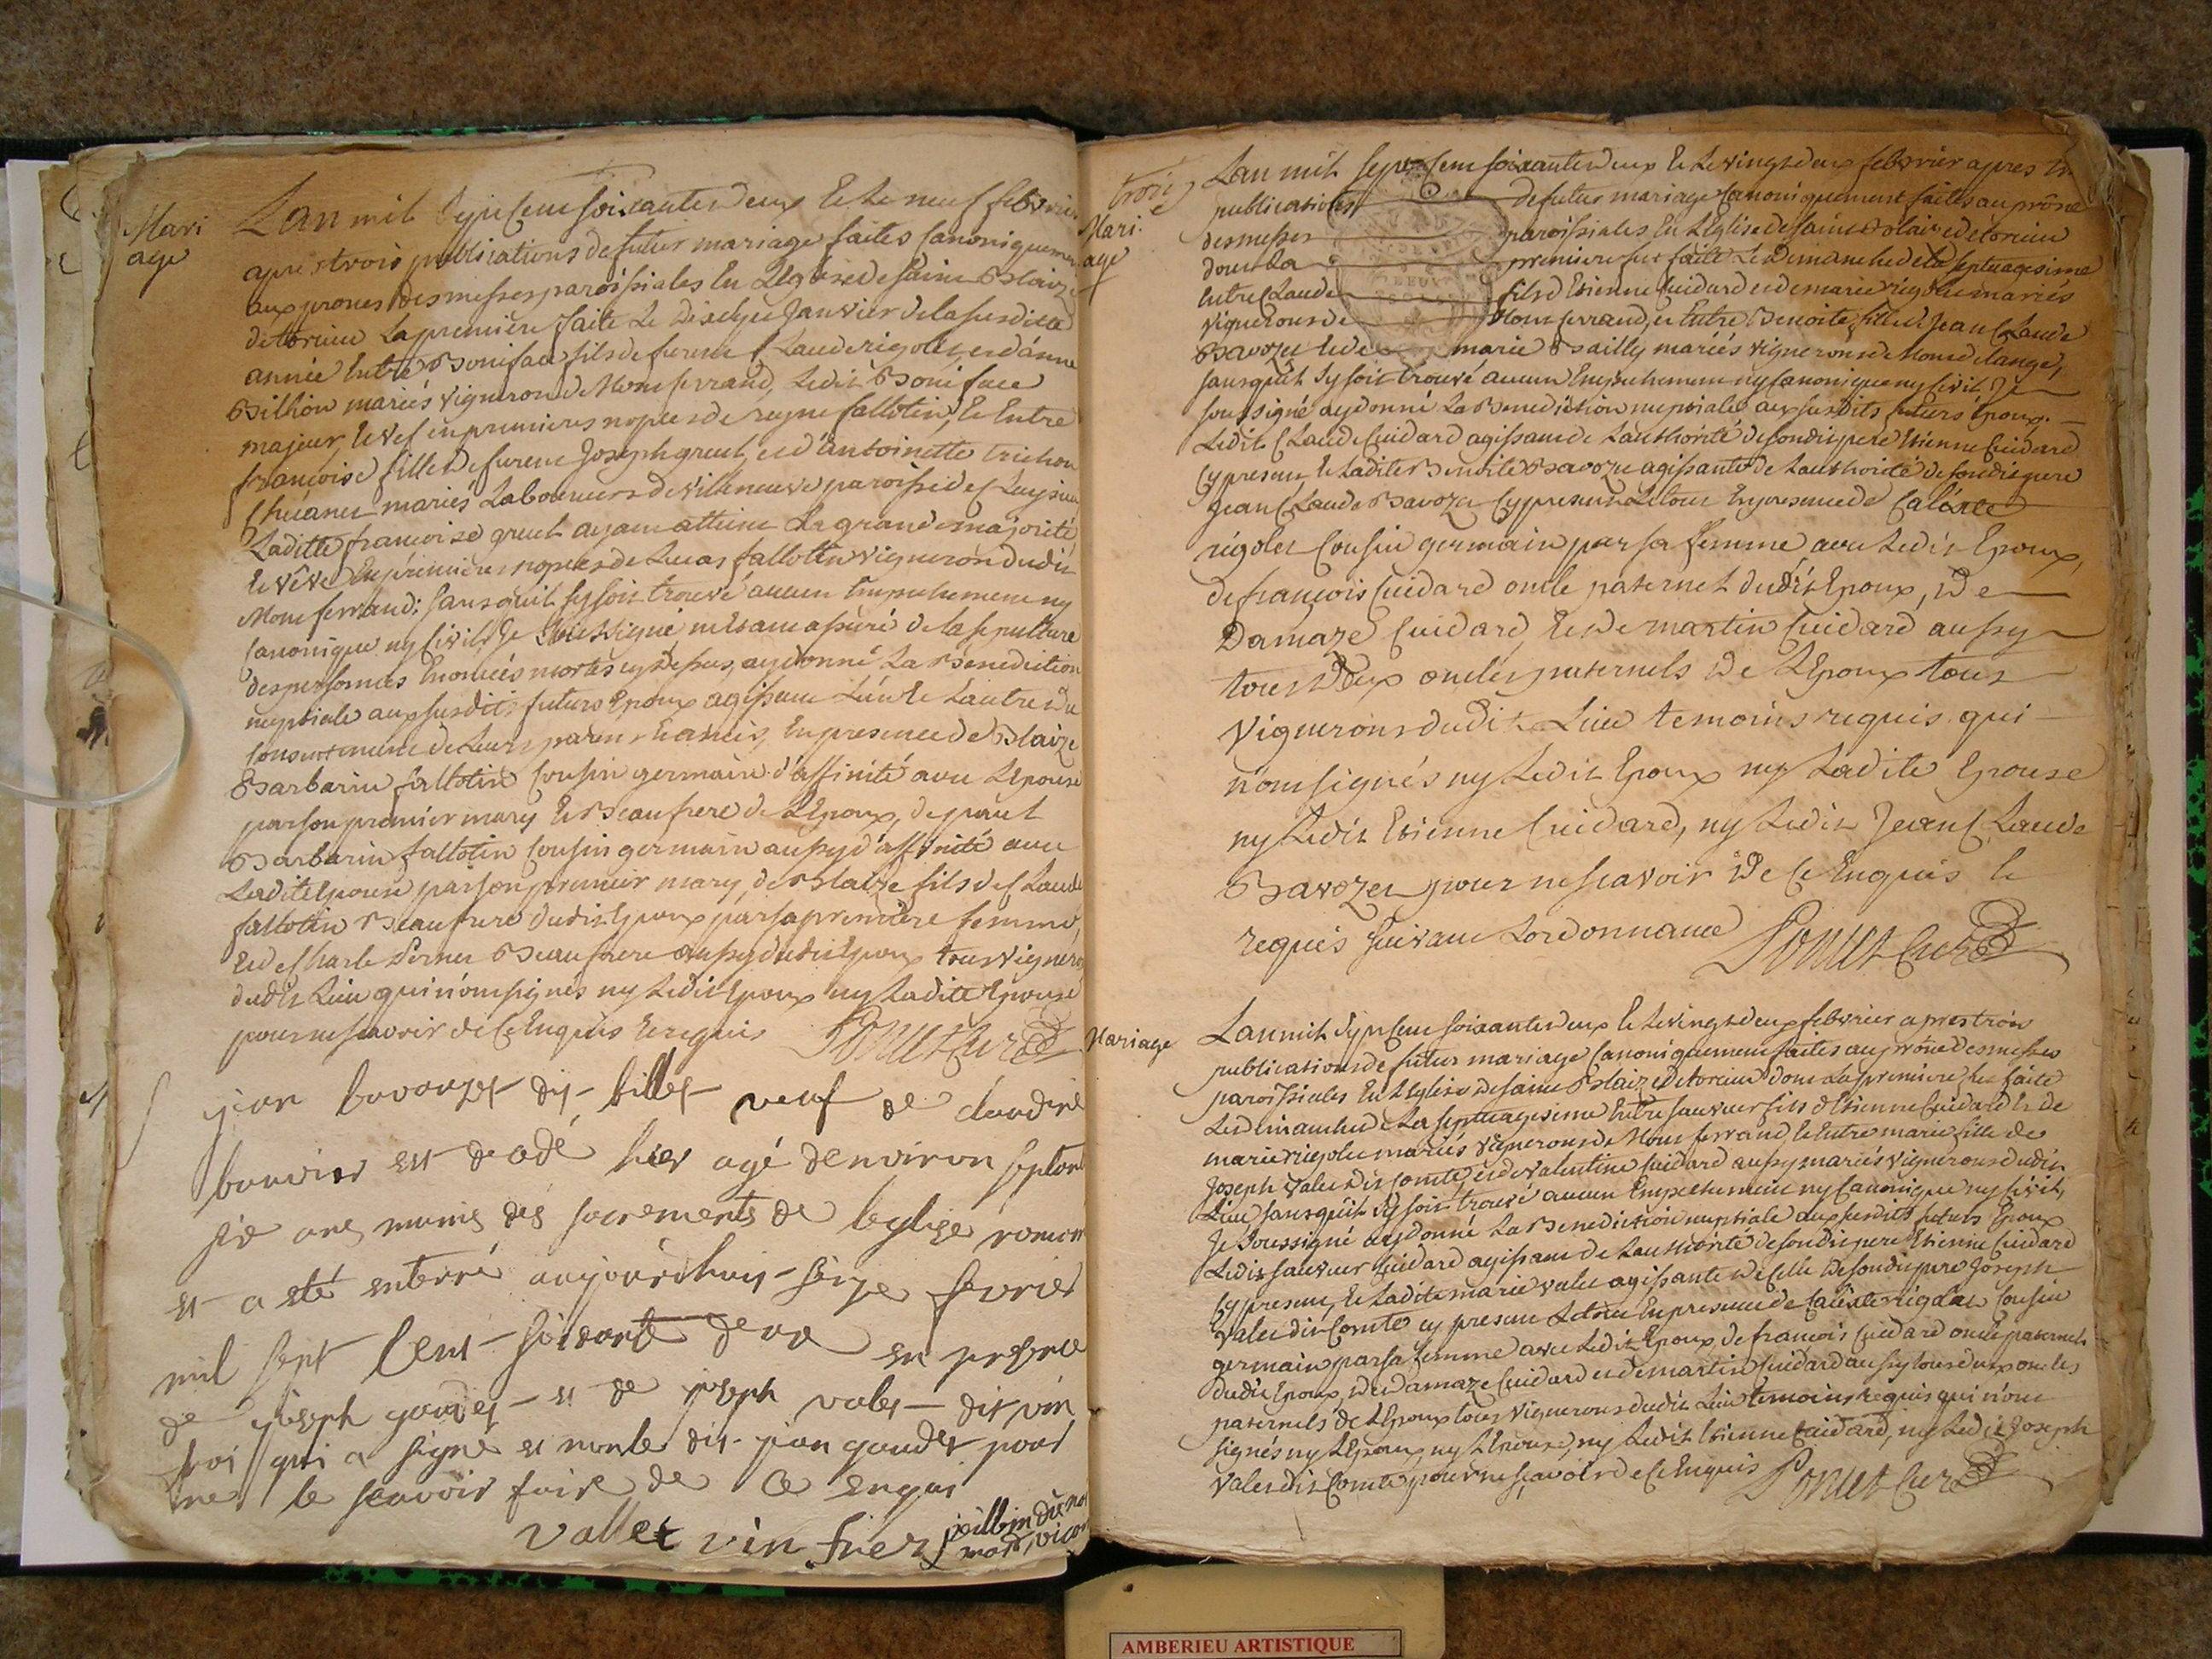 Mari
age
Lan mil sept cent soixante deux et le neuf febvrier
apres trois publications de futur mariage faites canoniquement
aux prones des messes paroissiales en Leglise de saint Blaize
de torcieu La premiere faite Le dixsept Janvier de la susditte
année Entre Boniface fils de furent Claude rigolet et d'anne
Billion mariés vigneron de Montferrand, Ledit Boniface
majeur, et vef en premieres nopces de reyne fallotin, et Entre
françoise fille de furent Joseph greut, et d'antoinette trichon
mariés Laboureurs de villeneuve paroisse de
Laditte francoise greut ayant atteint La grande majorité
et vêve En premieres nopces de Lucas fallotin vigneron dudit
Montferrand: sans quil sy soit trouvé aucun Empechement ny
canonique ny civil, Je soussigné metant assuré de la sepulture
des personnes Enoncés mortes cy dessus, ay donné La Benediction
nuptiale aux susdits futurs Epoux agissant Lun et Lautre du
consentement de Leurs parens et amis, En presence de Blaize
Barbarin fallotin Cousin germain d'affinité avec LEpouse
par son premier mary et Beaufrere de LEpoux, de paul
Barbarin fallotin Cousin germain aussy d'affinité avec
Laditte Epouse par son premier mary, de Blaize fils de Claude
fallotin Beaufrere dudit Epoux par sa premiere femme,
et de Charle Beaufrere aussy dudit Epoux tous vignerons
dudit Lieu qui n'ont signés ny Ledit Epoux ny Ladite Epouse
pour ne scavoir de ce Enquis et requis Ponet Curé
jean bavouzet dit billet veuf de claudine
bouvier est decedé hier agé denviron septante
six ans munis des sacrements de leglise romaine
et a eté enterré aujourdhuy seize fevrier
mil sept cent soixante deux en presence
de joseph gaudet et de joseph valet dit vin
frai qui a signé et non le dit jean gaudet pour
ne le scavoir faire de ce enquis
vallet vin frier
vicaire
trois
Mari.
age
Lan mil sept cent soixante deux et Le vingt deux febvrier apres
publications de futur mariage Canoniquement faites au prône
des messes paroissiales En LEglise de saint Blaize de torcieu
dont La premiere fut faite Le dimanche de la septuagesime
Entre Claude fils d'Etienne Cuidard et de marie rigolet mariés
vignerons de Montferrand, et Entre Benoite fille de Jean Claude
Bavozet et de marie Bailly mariés vignerons de Mont de lange,
sans quil sy soit trouvé aucun Empechement ny canonique ny civil, Je
soussigné ay donné La Benediction nuptiale aux susdits futurs Epoux.
Ledit Claude Cuidard agissant de Lauthorité de son dit pere Etienne Cuidard
cy present, et Ladite Benoite Bavozet agissante de Lauthorité de son dit pere
Jean Claude Bavozet cy present Le tout En presence de Calixte
rigolet Cousin germain par sa femme avec Ledit Epoux,
de francois Cuidard oncle paternel dudit Epoux, de
Damaze Cuidard, et de martin Cuidard aussy
tous deux oncles paternels de LEpoux tous
vignerons dudit Lieu temoins requis qui
n'ont signés ny Ledit Epoux ny Ladite Epouse
ny Ledit Etienne Cuidard, ny Ledit Jean Claude
Bavozet pour ne scavoir de ce Enquis et
requis suivant Lordonnance Ponet Curé
Mariage
Lan mil sept cent soixante deux et Le vingt deux febvrier apres trois
publications de futur mariage Canoniquement faites au prône des messes
paroissiales En LEglise de saint Blaize de torcieu dont La premiere fut faite
Le dimanche de La septuagesime Entre sauveur fils d'Etienne Cuidard et de
marie rigolet mariés vignerons de Montferrand, et Entre marie fille de
Joseph valet dit Comte, et de valentine Cuidard aussy mariés vignerons dudit
Lieu sans quil sy soit trouvé aucun Empechement ny Canonique ny civil,
Je soussigné ay donné La Benediction nuptiale aux susdits futurs Epoux
Ledit sauveur Cuidard agissant de Lauthorité de son dit pere Etienne Cuidard
cy present, et Ladite marie valet agissante de Celle de son dit pere Joseph
valet dit Comte cy present Le tout En presence de Calixte rigolet Cousin
germain par sa femme avec Ledit Epoux de francois Cuidard oncle paternel
dudit Epoux, de damaze Cuidard et de martin Cuidard aussy tous deux oncles
paternels de LEpoux tous vignerons dudit Lieu temoins requis qui n'ont
signés ny LEpoux, ny LEpouse, ny Ledit Etienne Cuidard, ny Ledit Joseph
valet dit Comte, pour ne scavoir de ce Enquis Ponet Curé
AMBERIEU ARTISTIQUE